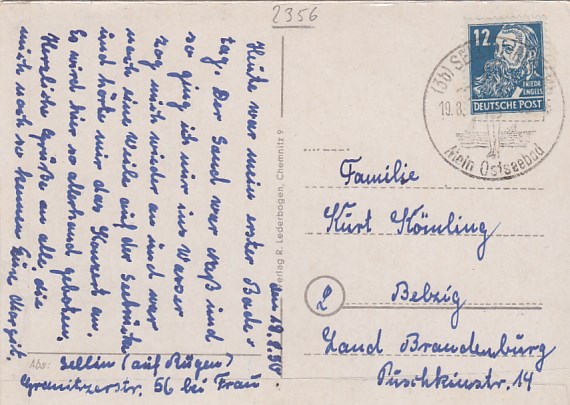 2356
den 18.8.50.
Heute war mein erster Bade-
tag. Der Sand war naß und
so ging ich nur ins Wasser
zog mich wieder an und war
noch eine Weile auf der Seebrücke
und hörte mir das Konzert an.
Es wird hier so allerhand geboten.
Herzliche Grüße an alle, die
mich noch so kennen Eure Margit.
Abs: Sellin (auf Rügen)
Granitzerstr. 56 bei Frau
Verlag R. Lederbogen, Chemnitz 9
12
FRIEDR.
ENGELS
DEUTSCHE POST
(3b) SE
19.8.
Mein Ostseebad
Familie
Kurt Kömling
Belzig
Land Brandenburg
Puschkinstr. 14